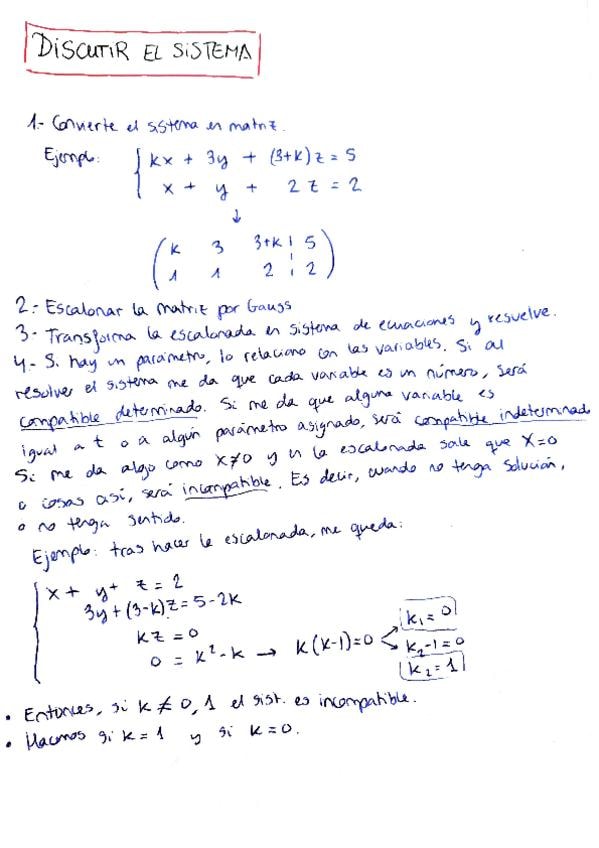 DISCUTIR EL SISTEMA
1.- Convierte el sistema en matriz.
Ejemplo: { kx + 3y + (3+k)z = 5
x + y + 2z = 2
↓
( k 3 3+k | 5
1 1 2 | 2 )
2.- Escalonar la matriz por Gauss
3.- Transforma la escalonada en sistema de ecuaciones y resuelve.
4.- Si hay un parámetro, lo relaciono con las variables. Si al
resolver el sistema me da que cada variable es un número, será
compatible determinado. Si me da que alguna variable es
igual a t o a algún parámetro asignado, será compatible indeterminado
Si me da algo como x≠0 y en la escalonada sale que x=0
o cosas así, será incompatible. Es decir, cuando no tenga solución,
o no tenga sentido.
Ejemplo: tras hacer la escalonada, me queda:
{ x + y + z = 2
3y + (3-k)z = 5-2k
kz = 0
0 = k² - k → k(k-1)=0
k₁ = 0
k₂-1=0
k₂ = 1
• Entonces, si k ≠ 0,1 el sist. es incompatible.
• Hacemos si k = 1 y si k = 0.